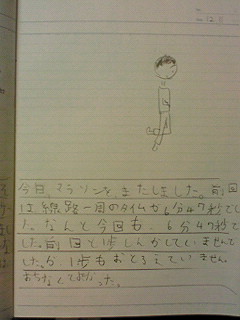 12日
今日、マラソンをまたしました。前回
は線路一周のタイムが6分47秒でし
た。なんと今回も、6分47秒で
した。前回と1歩しんかしていませんで
したが1歩もおとろえていません。
あらなんと
った。